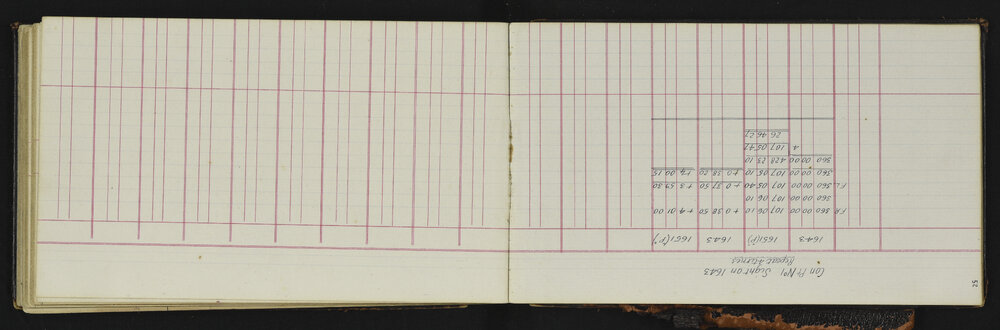 25
Con Pt No 1 Sight on 1643
Repeat 4 times
1643 1651(P) 1643 1651(P)
FR 360 00 00 107 06 10 + 0 38 50 + 4 01 00
360 00 00 107 06 10
FL 360 00 00 107 05 40 + 0 37 50 + 3 59 30
360 00 00 107 06 10 + 0 38 20 + 4 00 15
360 00 00 428 23 10
4 107 05 47
26 46 27